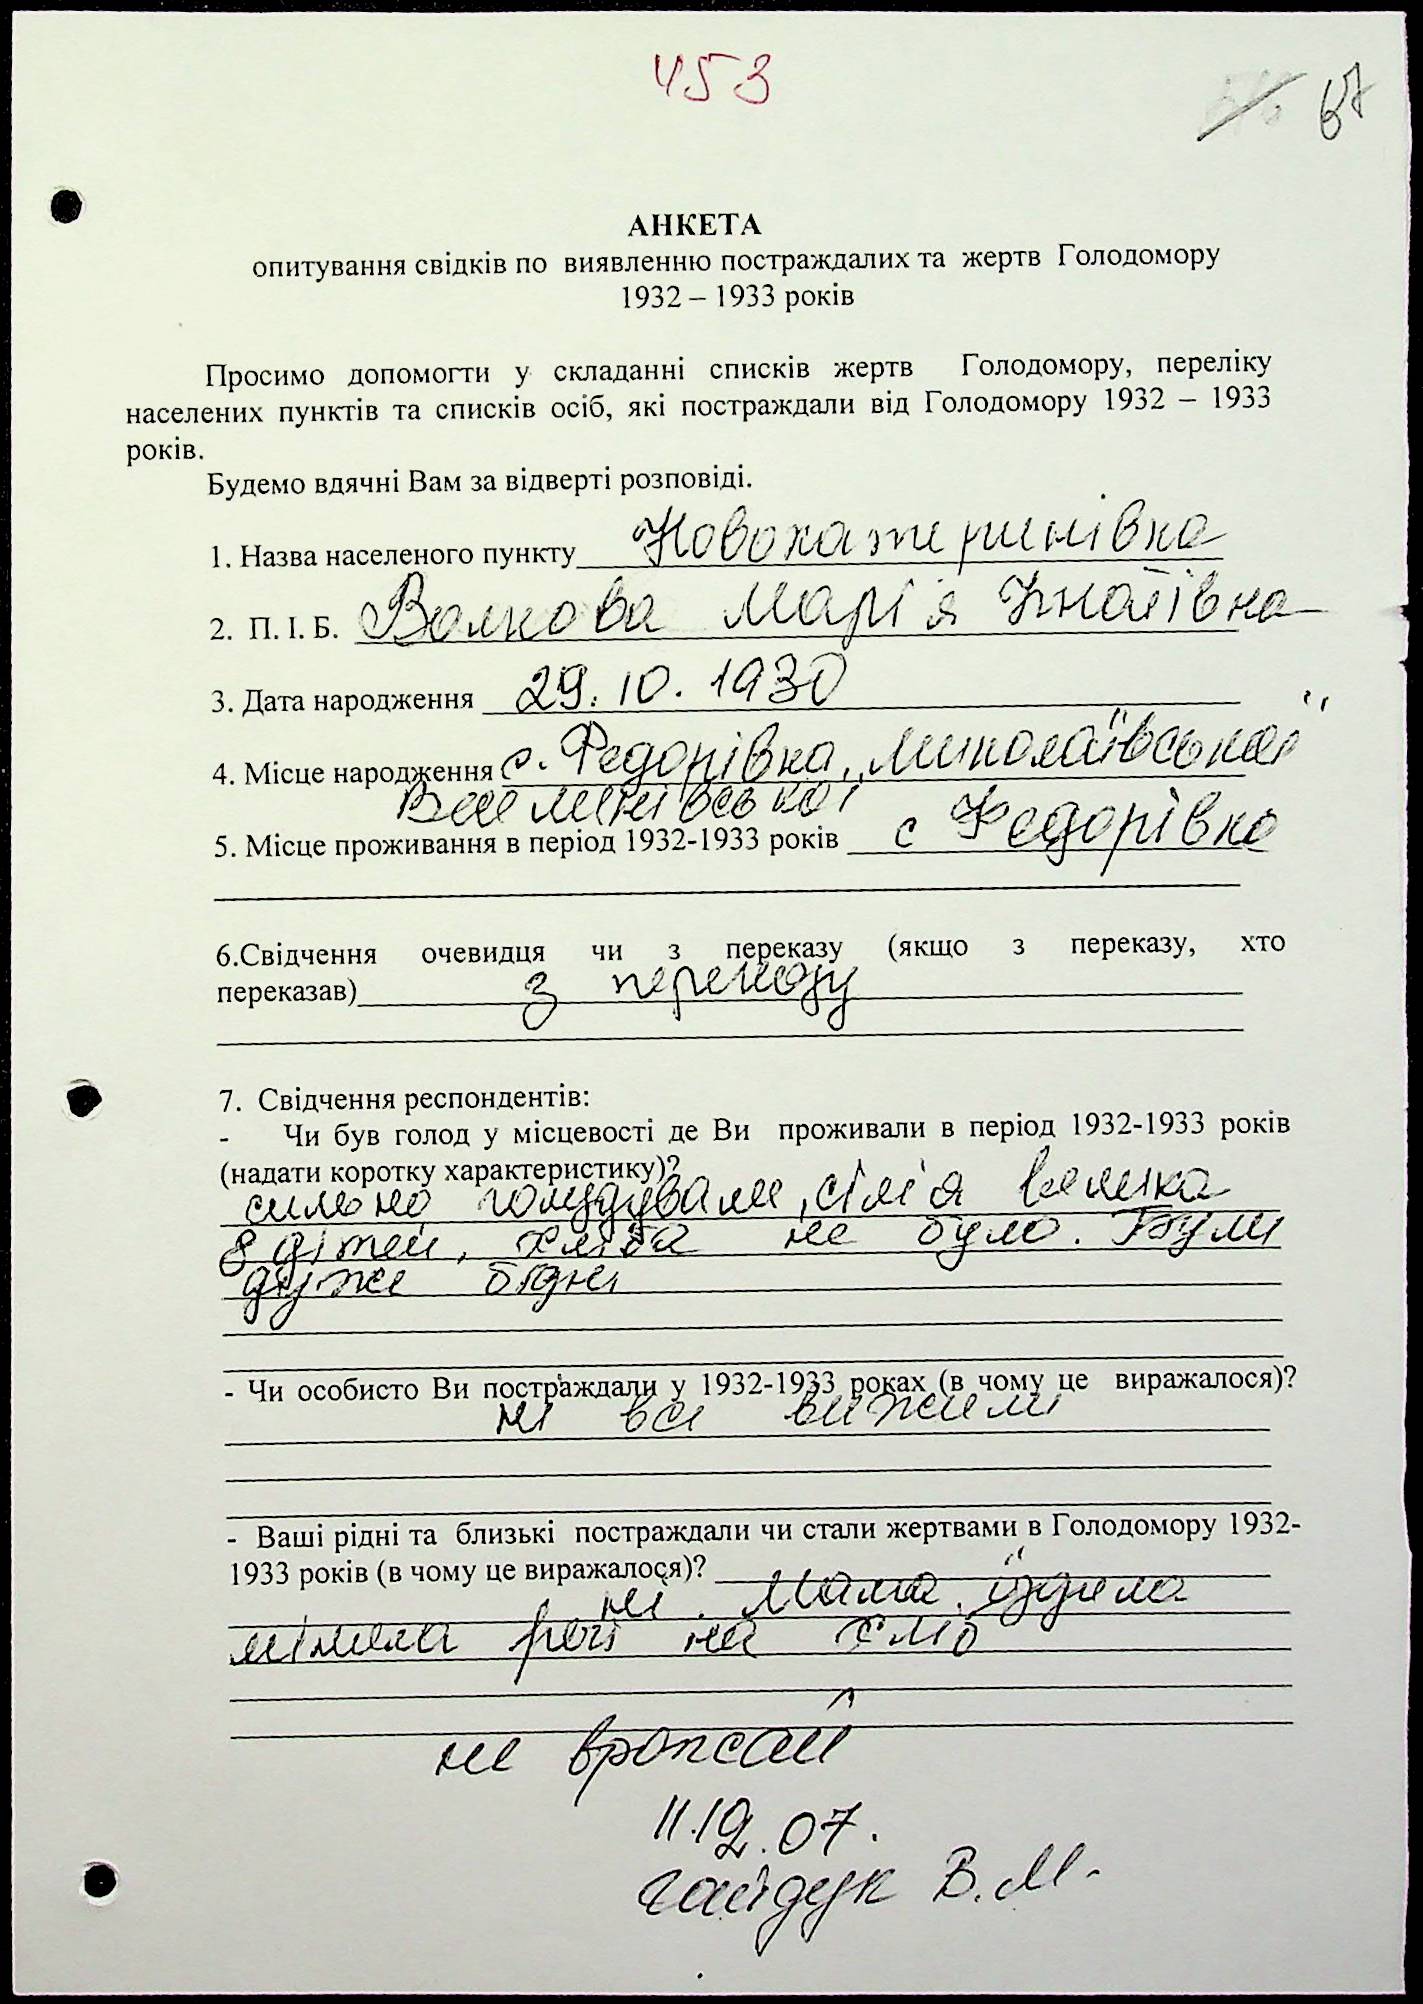 453
67
АНКЕТА
опитування свідків по виявленню постраждалих та жертв Голодомору
1932 – 1933 років
Просимо допомогти у складанні списків жертв Голодомору, переліку
населених пунктів та списків осіб, які постраждали від Голодомору 1932 – 1933
років.
Будемо вдячні Вам за відверті розповіді.
1. Назва населеного пункту Новокатеринівка
2. П. І. Б. Волкова Марія Ігнатівна
3. Дата народження 29.10.1930
4. Місце народження с. Федорівка, Миколаївської
5. Місце проживання в період 1932-1933 років с Федорівка
6.Свідчення очевидця чи з переказу (якщо з переказу, хто
переказав) з переказу
7. Свідчення респондентів:
- Чи був голод у місцевості де Ви проживали в період 1932-1933 років
(надати коротку характеристику)?
сильно голудували, сім'я велика
8 дітей, хліба не було. Були
дуже бідні
- Чи особисто Ви постраждали у 1932-1933 роках (в чому це виражалося)?
ні всі вижили
- Ваші рідні та близькі постраждали чи стали жертвами в Голодомору 1932-
1933 років (в чому це виражалося)?
ні. Мама їздила
міняла речі на хліб
не врожай
11.12.07.
Гайдук В.М.